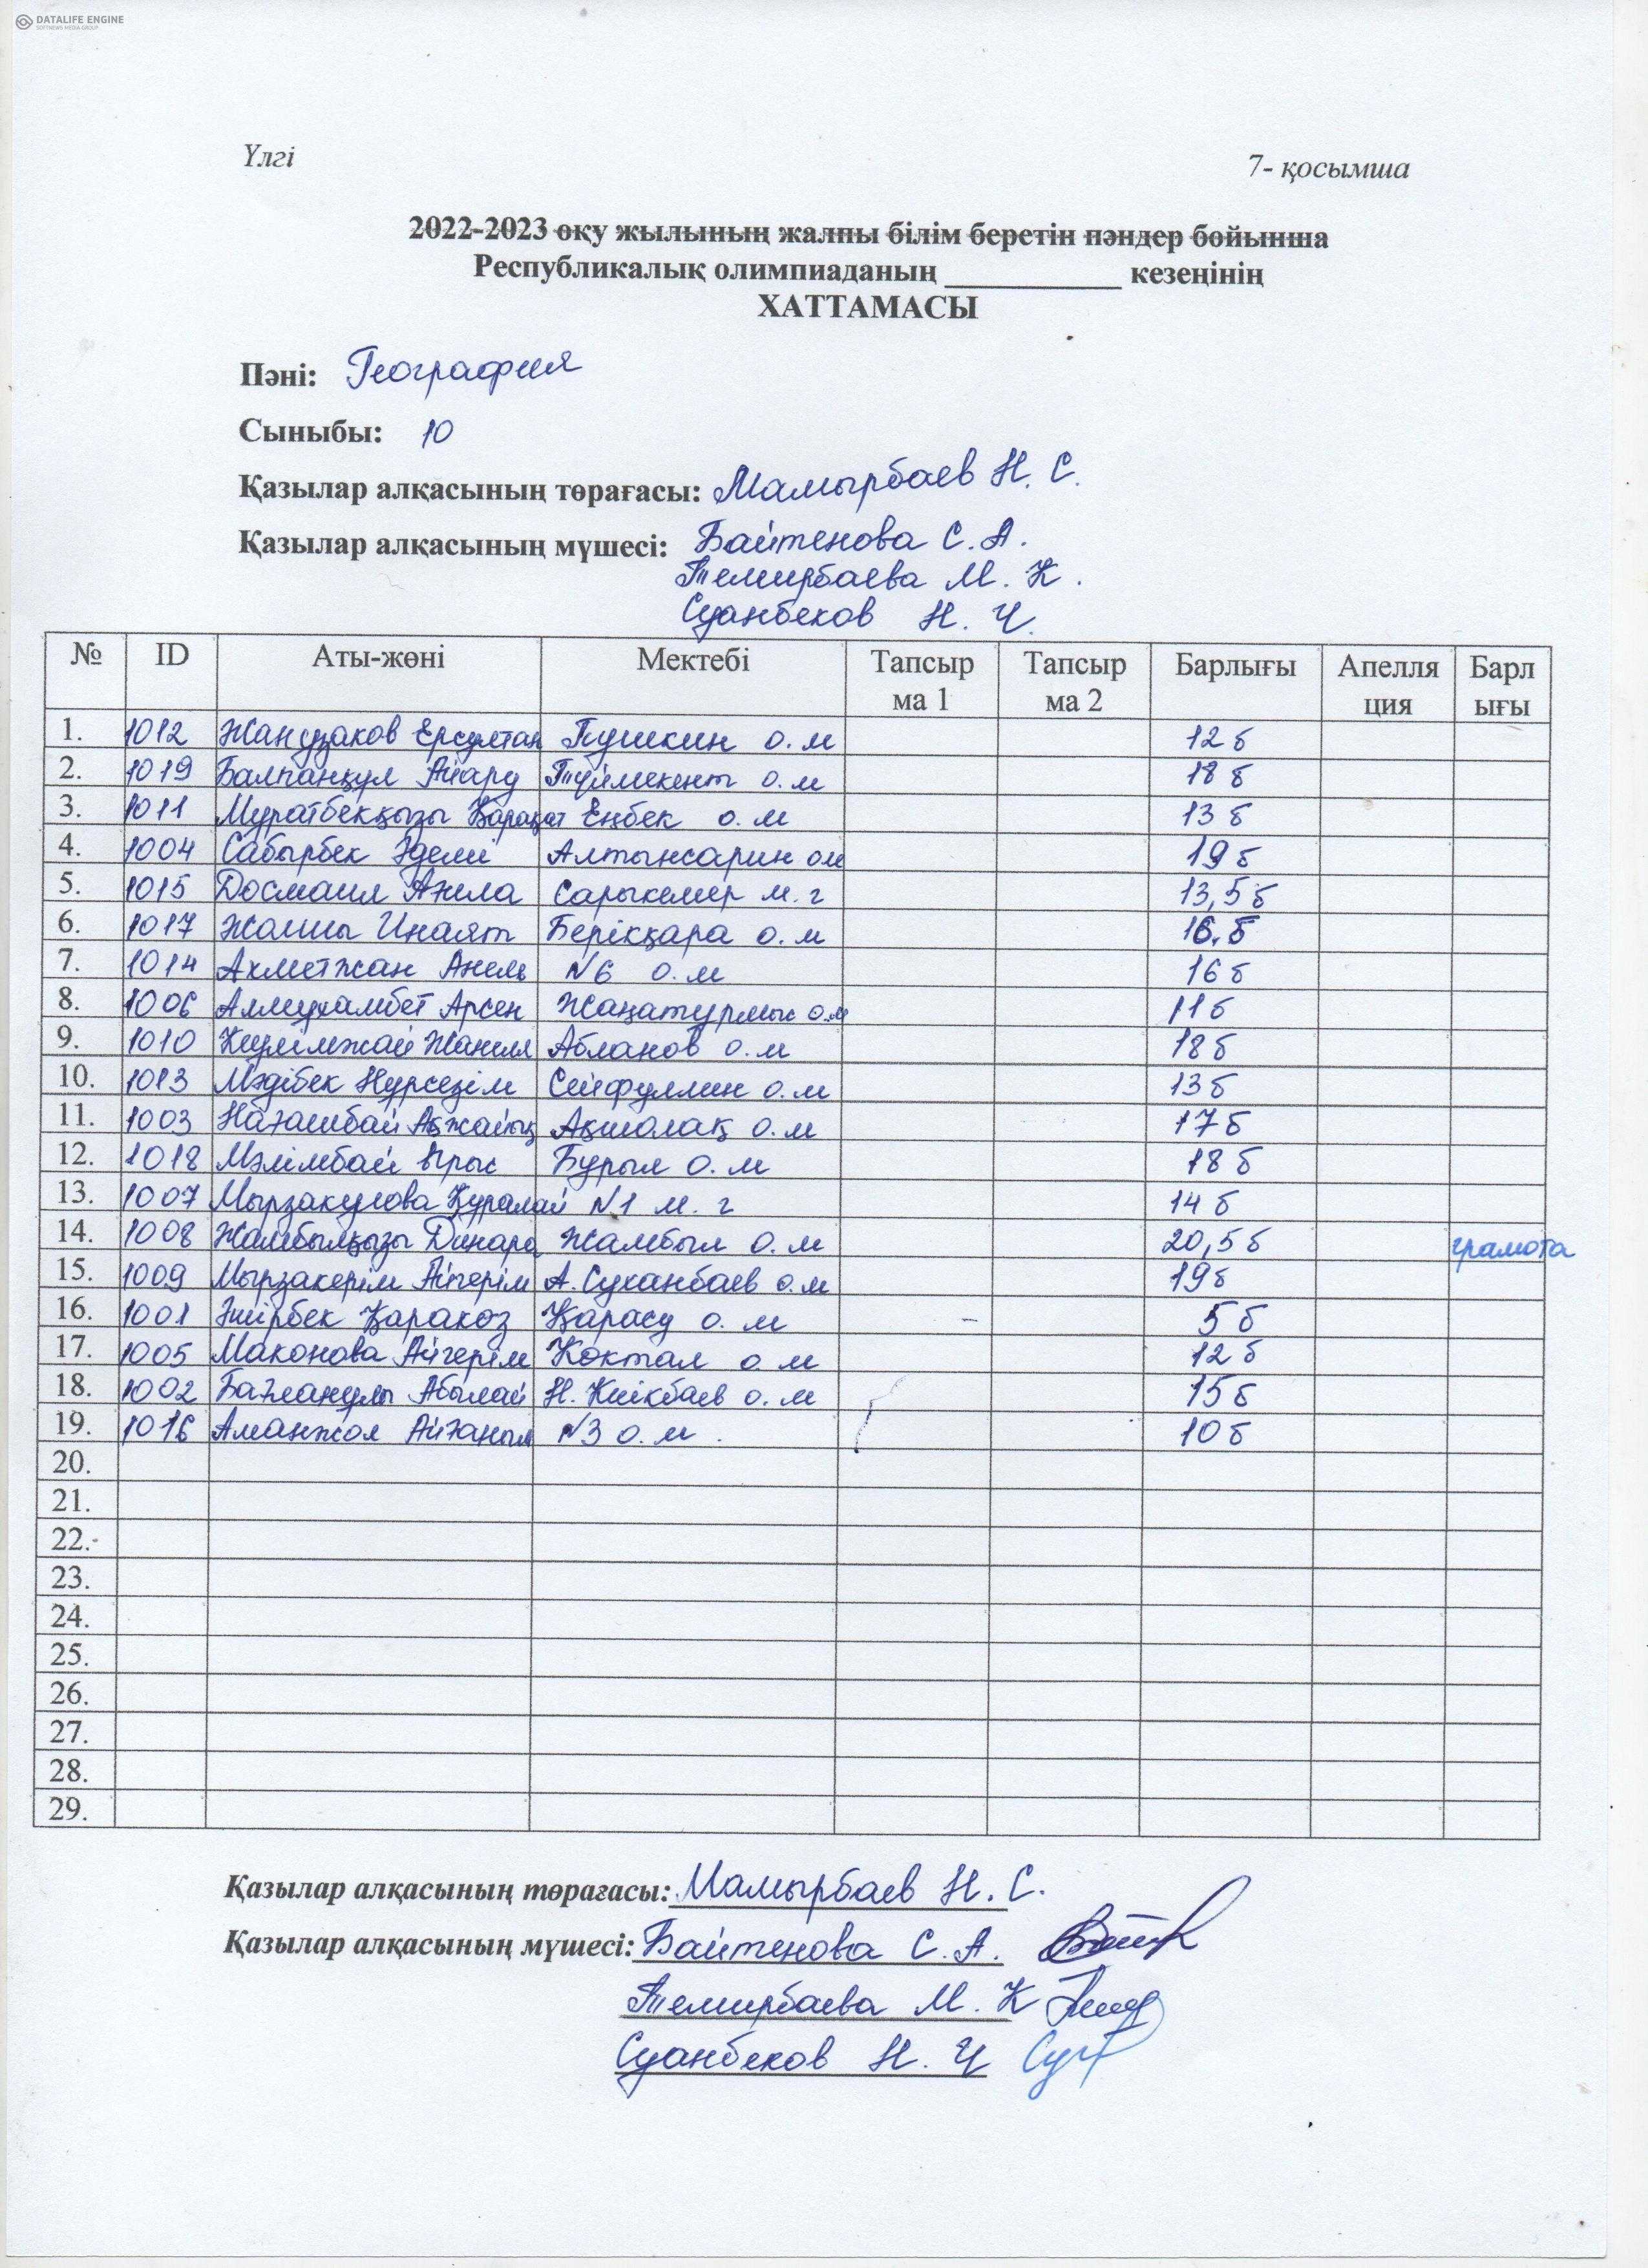 DATALIFE ENGINE
SOFTNEWS MEDIA GROUP
Үлгі
7- қосымша
2022-2023 оқу жылының жалпы білім беретін пәндер бойынша
Республикалық олимпиаданың ___________ кезеңінің
ХАТТАМАСЫ
Пәні: География
Сыныбы: 10
Қазылар алқасының төрағасы: Мамырбаев Н. С.
Қазылар алқасының мүшесі: Байтенова С. А.
Темирбаева М. К.
Суанбеков Н. Ч.
№ ID Аты-жөні Мектебі Тапсырма 1 Тапсырма 2 Барлығы Апелляция Барлығы
1. 1012 Жанузаков Ерсултан Пушкин о. м 12 б
2. 1019 Балпанқул Айару Түймекент о. м 18 б
3. 1011 Муратбекқызы Қарақат Еңбек о. м 13 б
4. 1004 Сабырбек Әдемі Алтынсарин ом 19 б
5. 1015 Досмаил Ажла Сарыкемер м. г 13,5 б
6. 1017 Жолшы Инаят Берікқара о. м 16. б
7. 1014 Ахметжан Анель №6 о. м 16 б
8. 1006 Алмухамбет Арсен Жаңатурмыс о.м 11 б
9. 1010 Жанел Абланов о. м 18 б
10. 1013 Мәдібек Нұрсезім Сейфуллин о. м 13 б
11. 1003 Нағашбай Ақжайық Ақшолақ о. м 17 б
12. 1018 Мәлімбай Ырыс Бурыл о. м 18 б
13. 1007 Мырзакулова Құралай №1 м. г 14 б
14. 1008 Жамбылқызы Динара Жамбыл о. м 20,5 б грамота
15. 1009 Мырзакерім Айгерім А. Суханбаев о. м 19 б
16. 1001 Әшірбек Қаракөз Қарасу о. м 5 б
17. 1005 Маконова Айгерім Көктал о. м 12 б
18. 1002 Бағланұлы Абылай Н. Киікбаев о. м 15 б
19. 1016 Аманжол Айғаным №3 о. м . 10 б
20.
21.
22.
23.
24.
25.
26.
27.
28.
29.
Қазылар алқасының төрағасы: Мамырбаев Н. С.
Қазылар алқасының мүшесі: Байтенова С. А.
Темирбаева М. К
Суанбеков Н. Ч